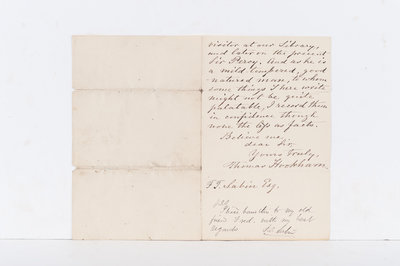 visitor at our Library,
and later on the present
Sir Percy. And as he is
a mild tempered, good
natured man, to whom
some things I here write
might not be quite
palatable, I send them
in confidence though
none the less as facts.
Believe me,
dear Sir,
Yours truly,
Thomas Hookham.
F. T. Sabin Esq.
to my old
friend Fred. with my best
regards